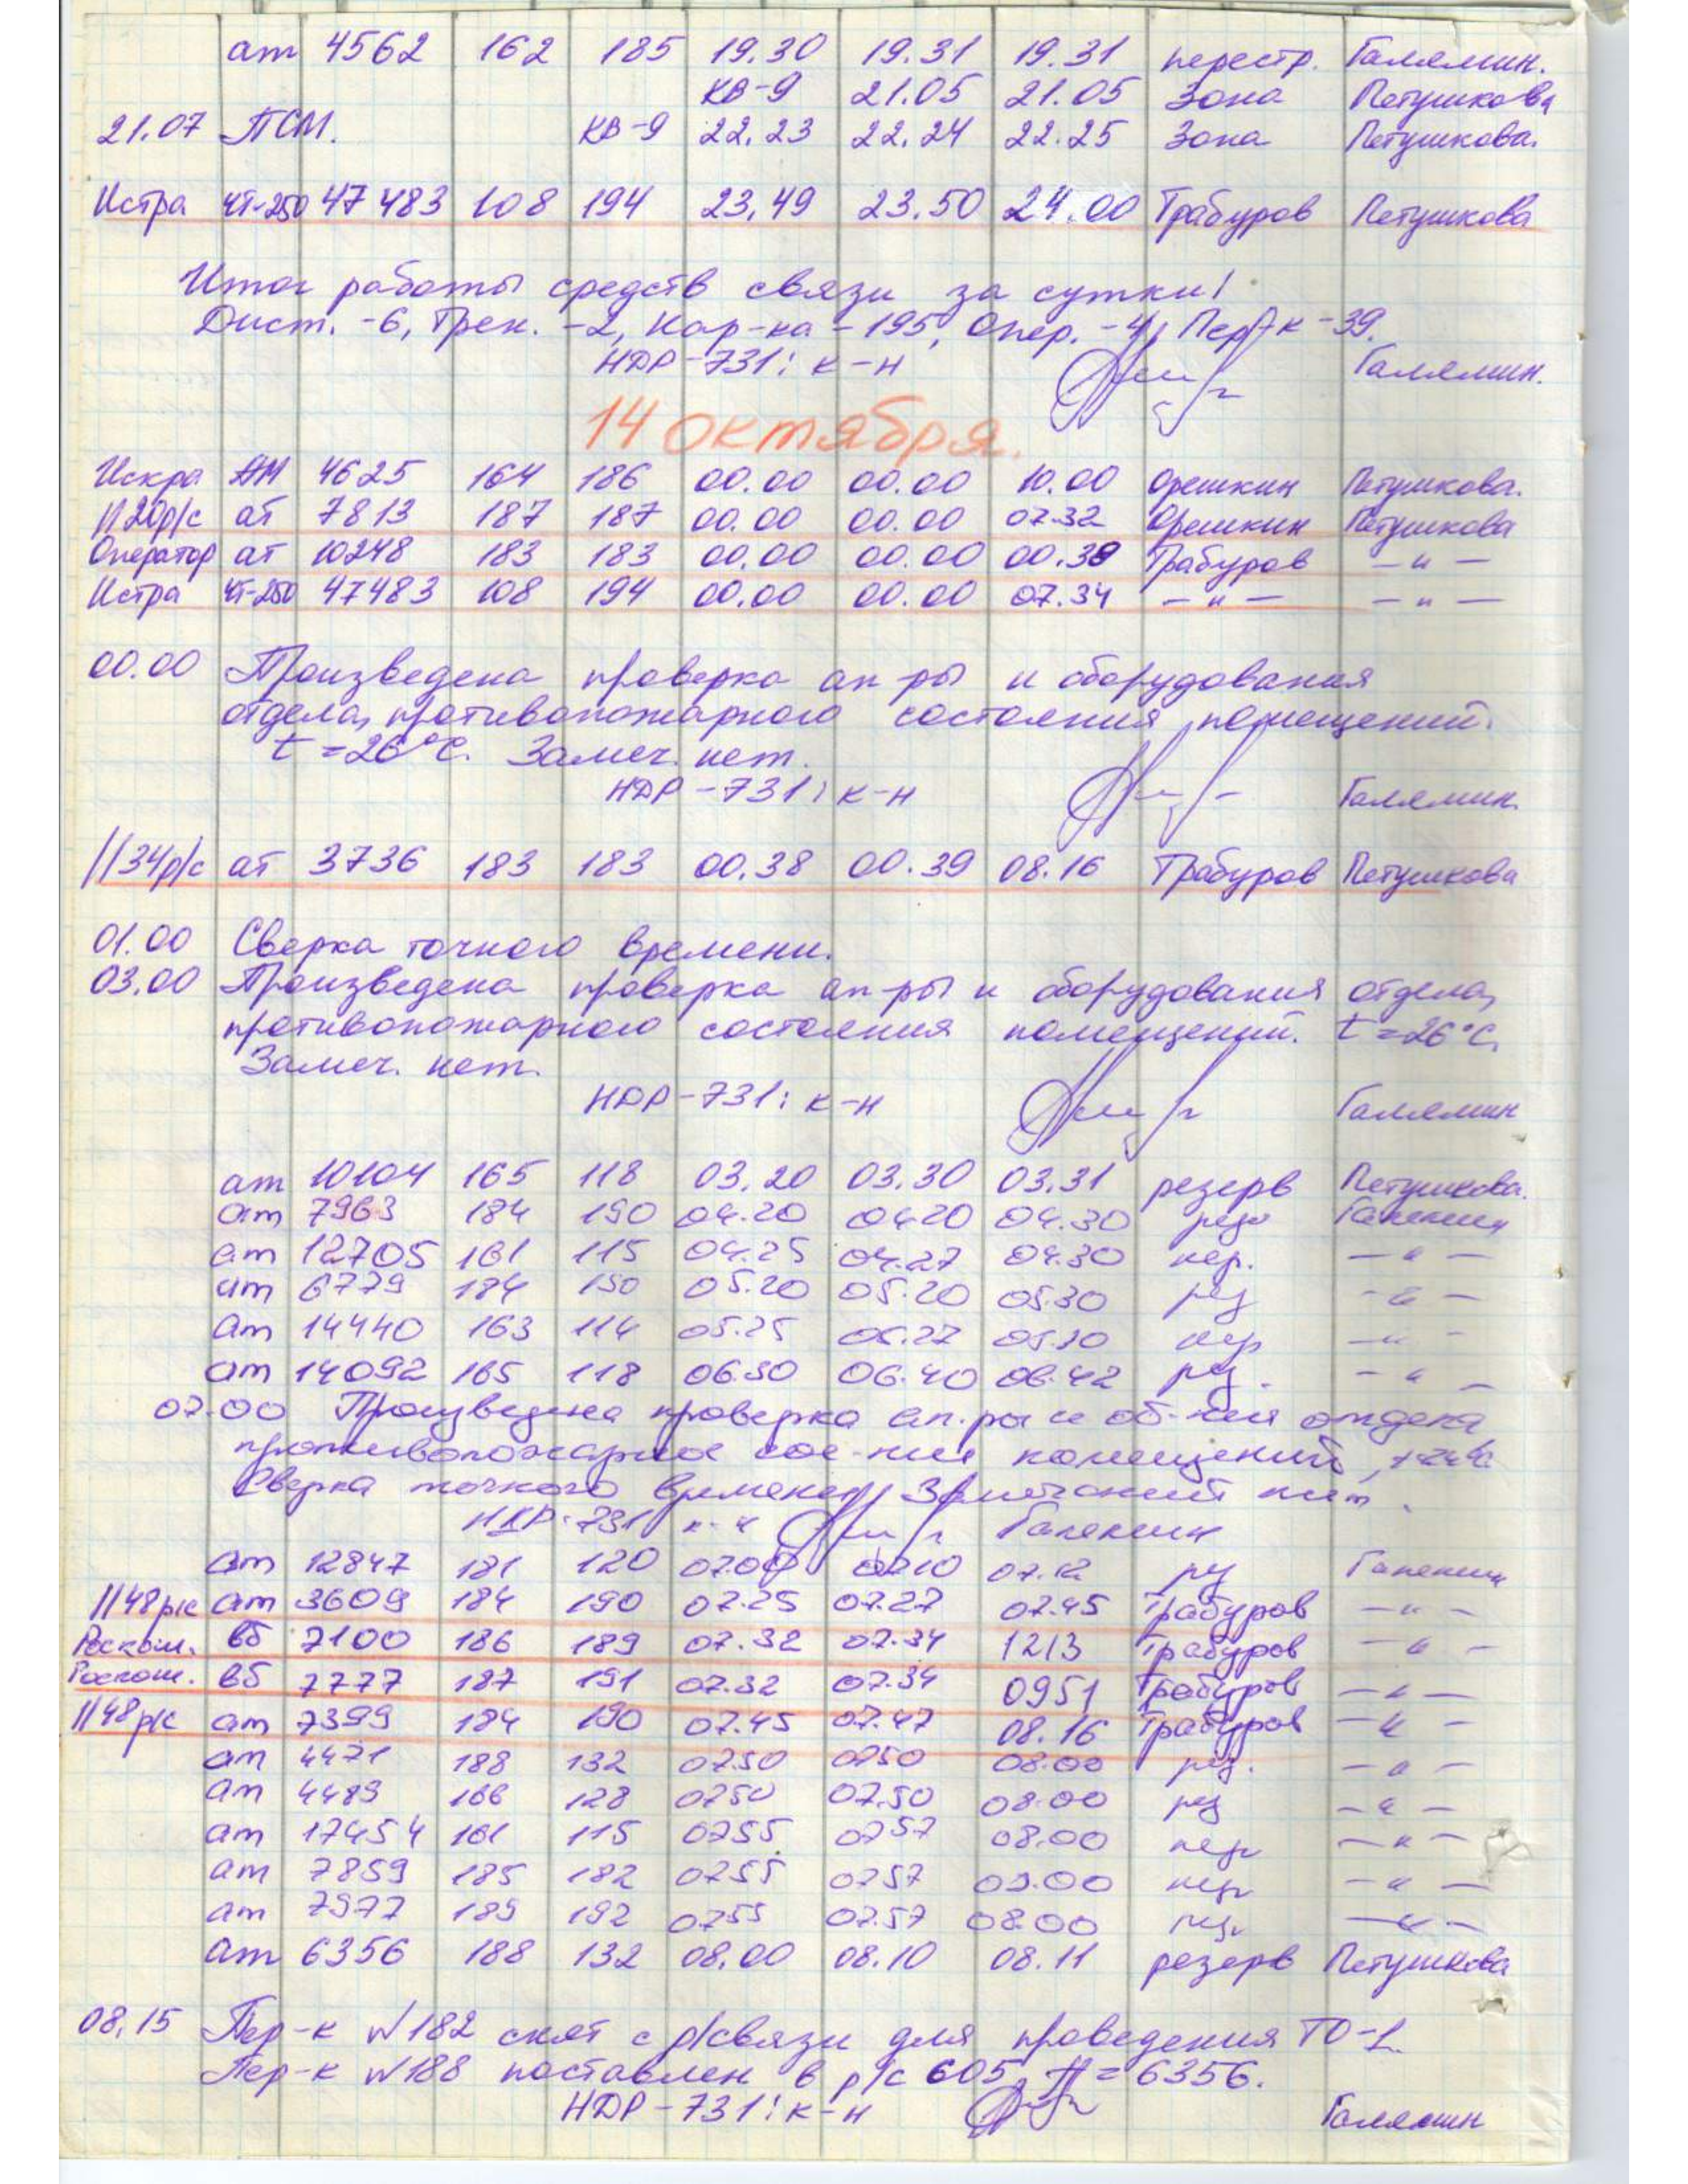 ат 4562 162 185 19.30 19.31 19.31 перестр. Галямин.
КВ-9 21.05 21.05 Зона Петушкова
21.07 ПСМ. КВ-9 22.23 22.24 22.25 Зона Петушкова.
Истра ЧТ-250 47483 108 194 23.49 23.50 24.00 Трабуров Петушкова
Итог работы средств связи за сутки!
Дист. -6, Трен. -2, Кор-ка -195, Опер. -4, Пер-к -39.
НДР-731: к-н Галямин.
14 октября.
Искра АМ 4625 164 186 00.00 00.00 10.00 Орешкин Петушкова.
1120р/с ат 7813 187 187 00.00 00.00 07.32 Орешкин Петушкова
Оператор ат 10248 183 183 00.00 00.00 00.38 Трабуров -"-
Истра ЧТ-250 47483 108 194 00.00 00.00 07.34 -"- -"-
00.00 Произведена проверка ап-ры и оборудования
отдела, противопожарного состояния помещений.
t=26°C. Замеч. нет.
НДР-731: к-н Галямин
1134р/с ат 3736 183 183 00.38 00.39 08.16 Трабуров Петушкова
01.00 Сверка точного времени.
03.00 Произведена проверка ап-ры и оборудования отдела,
противопожарного состояния помещений. t=26°C.
Замеч. нет.
НДР-731: к-н Галямин
ат 10104 165 118 03.20 03.30 03.31 резерв Петушкова.
ат 7963 184 190 04.20 04.20 04.30 рез Галямин
ат 12705 161 115 04.25 04.27 04.30 пер. -"-
ат 6779 184 190 05.20 05.20 05.30 рез -"-
ат 14440 163 114 05.25 05.27 05.30 пер -"-
ат 14092 165 118 06.30 06.40 06.42 рез. -"-
07.00 Произведена проверка ап.ры и об-ния отдела
противопожарное сос-ние помещений,
Сверка точного времени, Замечаний нет.
НДР-731 к-н Галямин
ат 12847 181 120 07.00 0710 07.12 рез Галямин
1148р/с ат 3609 184 190 07.25 07.27 07.45 Трабуров -"-
Роскош. вб 7100 186 189 07.32 07.34 1213 Трабуров -"-
Роскош. вб 7777 187 191 07.32 07.34 0951 Трабуров -"-
1148р/с ат 7399 184 190 07.45 07.47 08.16 Трабуров -"-
ат 4471 188 132 0750 0750 08.00 рез. -"-
ат 4483 166 128 0750 07.50 08.00 рез -"-
ат 17454 161 115 0755 0757 08.00 пер -"-
ат 7859 185 182 0755 0757 08.00 пер -"-
ат 7977 189 192 0755 07.57 08.00 -"-
ат 6356 188 132 08.00 08.10 08.11 резерв Петушкова
08.15 Пер-к №182 снят с р/связи для проведения ТО-1.
Пер-к №188 поставлен в р/с 605, f=6356.
НДР-731: к-н Галямин